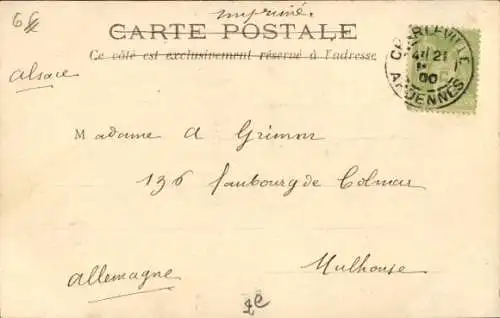 imprimé.
CARTE POSTALE
Ce côté est exclusivement réservé à l'adresse
Alsace
CHARLEVILLE
21
00
ARDENNES
Madame A Grimm
136 faubourg de Colmar
Mulhouse
Allemagne